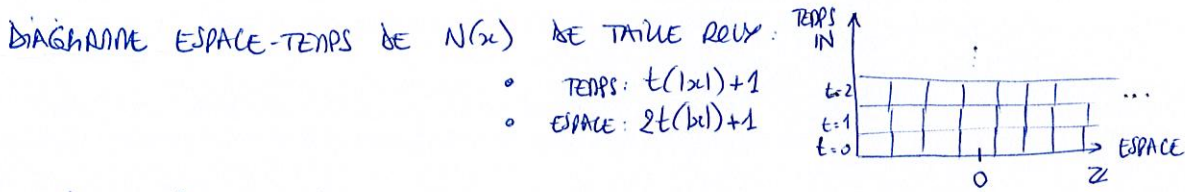 DIAGRAMME ESPACE-TEMPS DE N(x) DE TAILLE POLY :
• TEMPS : t(|x|)+1
• ESPACE : 2t(|x|)+1
TEMPS
IN
t=2
...
t=1
t=0
ESPACE
0
Z